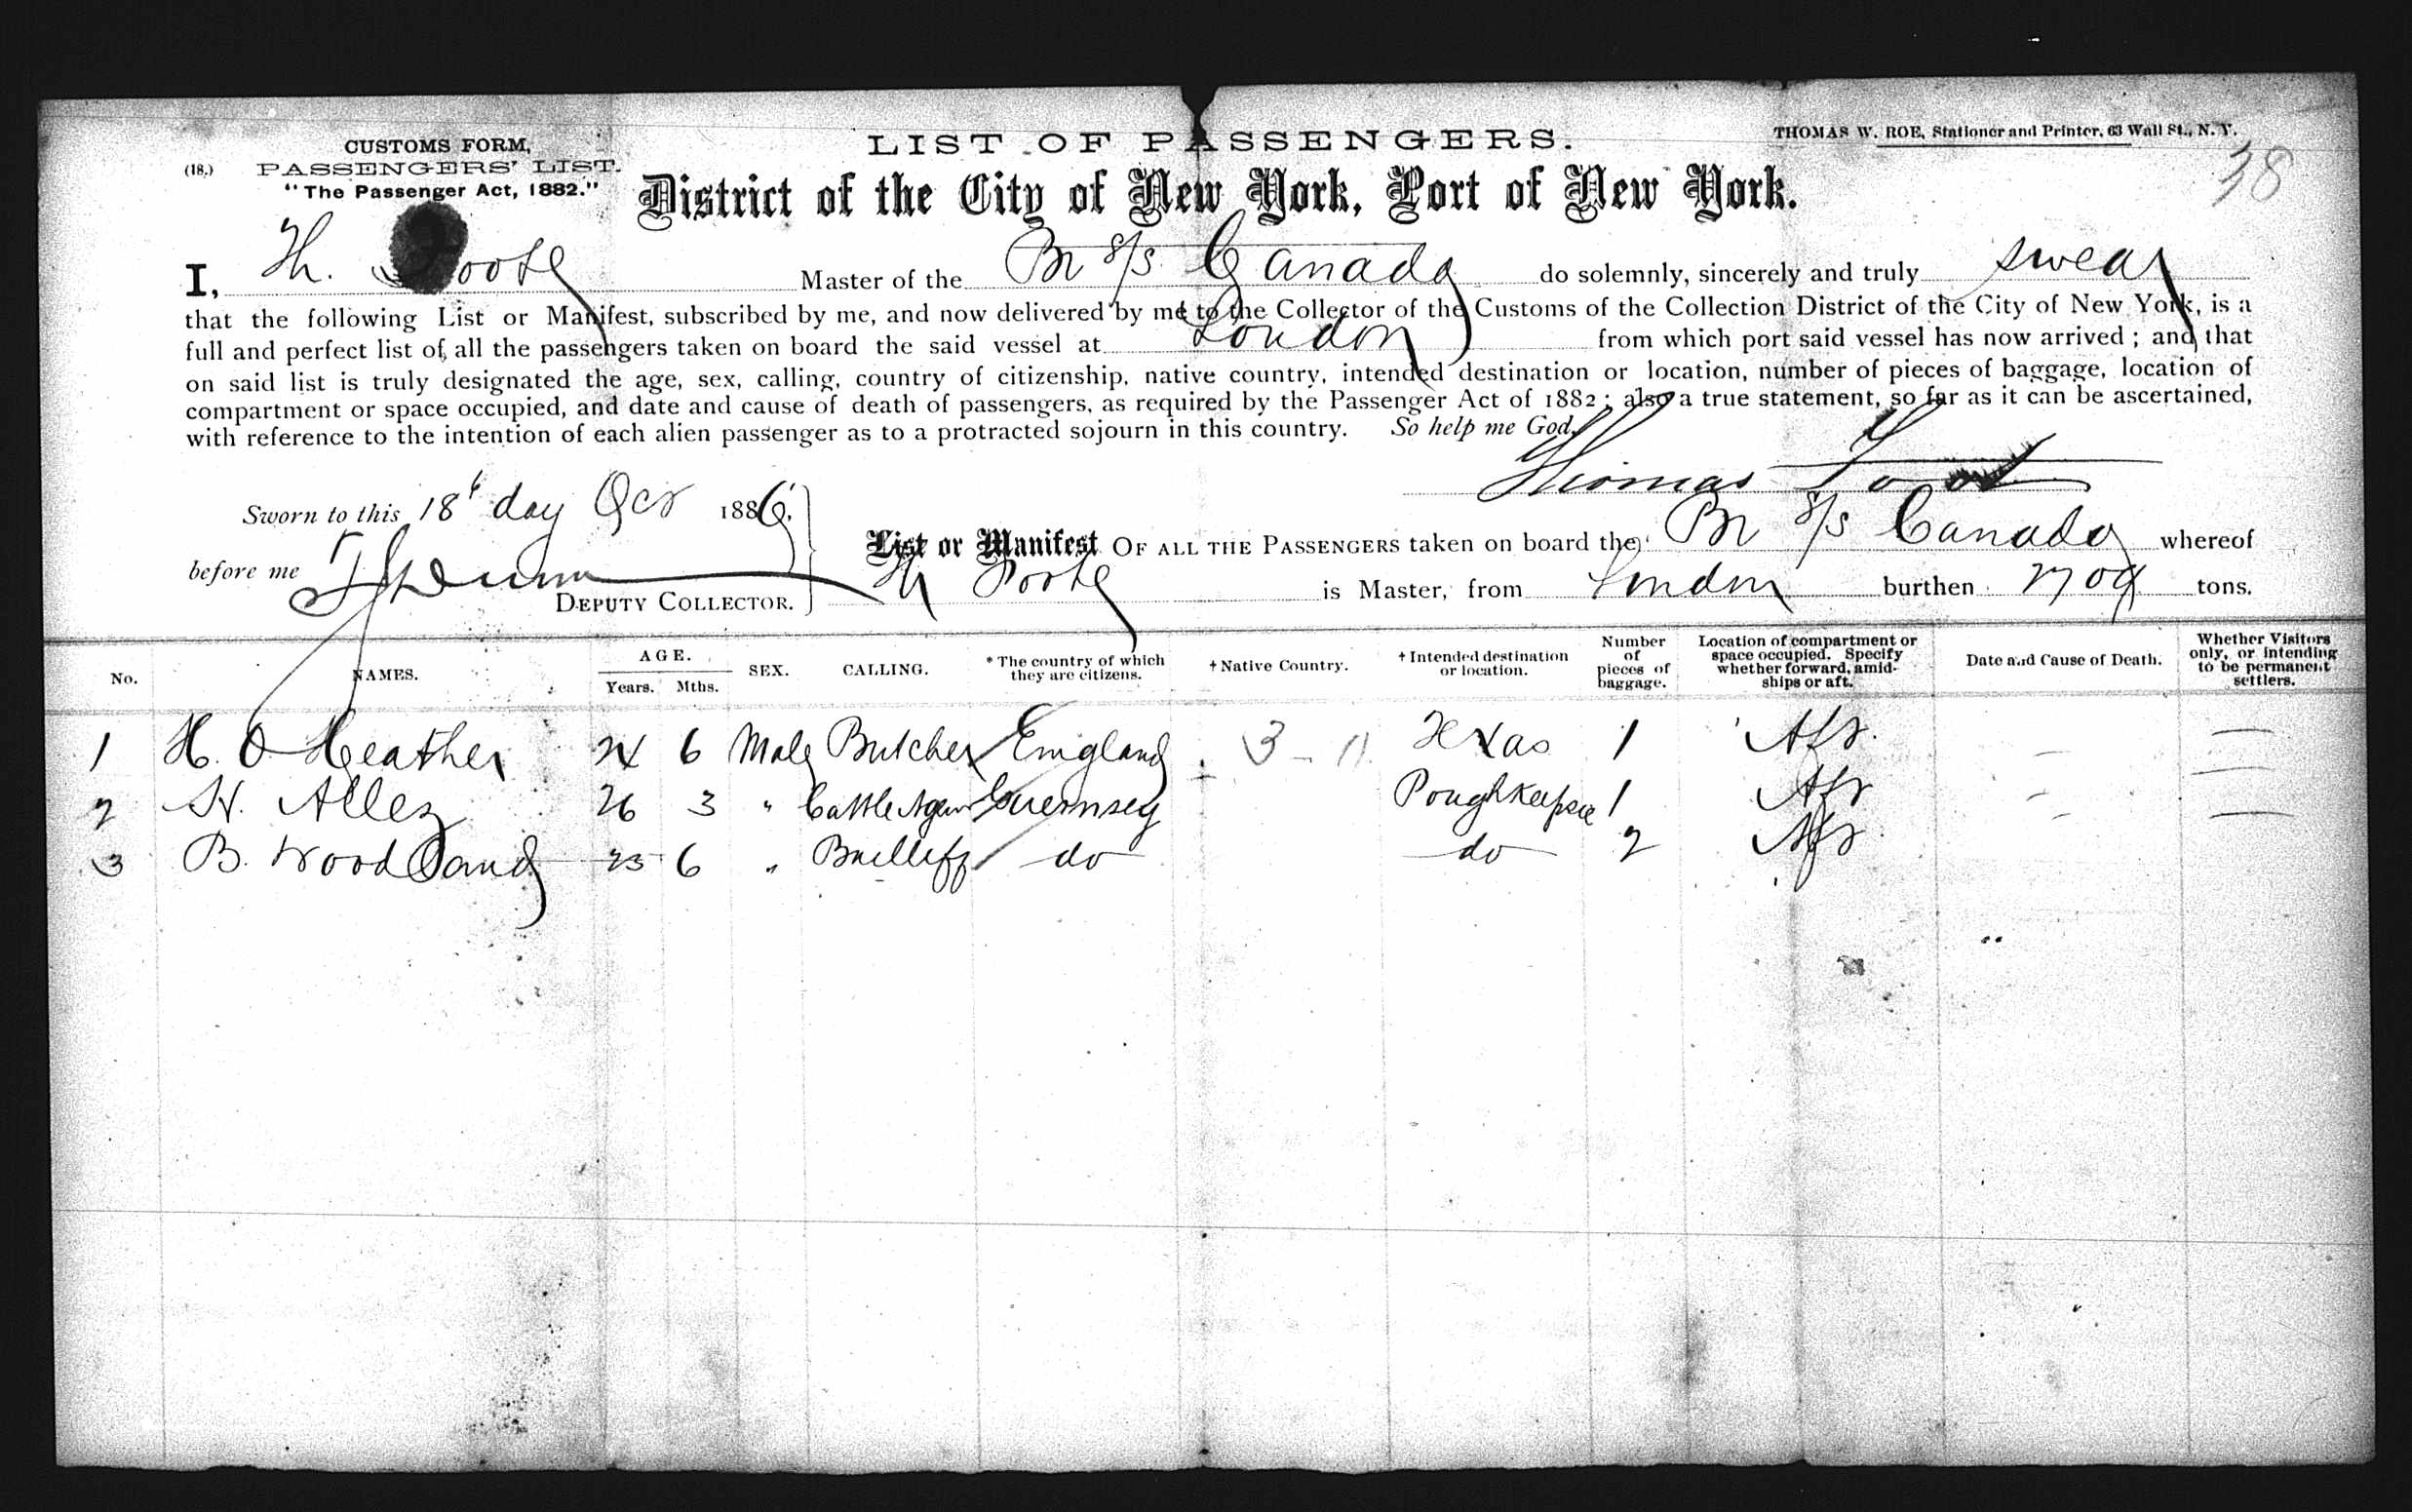 CUSTOMS FORM,
(18.) PASSENGERS' LIST.
"The Passenger Act, 1882."
LIST OF PASSENGERS.
THOMAS W. ROE, Stationer and Printer, 63 Wall St., N. Y.
38
District of the City of New York, Port of New York.
I, Th. Foote Master of the Br S/S Canada do solemnly, sincerely and truly swear
that the following List or Manifest, subscribed by me, and now delivered by me to the Collector of the Customs of the Collection District of the City of New York, is a
full and perfect list of all the passengers taken on board the said vessel at London from which port said vessel has now arrived ; and that
on said list is truly designated the age, sex, calling, country of citizenship, native country, intended destination or location, number of pieces of baggage, location of
compartment or space occupied, and date and cause of death of passengers, as required by the Passenger Act of 1882 ; also a true statement, so far as it can be ascertained,
with reference to the intention of each alien passenger as to a protracted sojourn in this country. So help me God.
Thomas Foote
Sworn to this 18 day Oct 1886,
before me
DEPUTY COLLECTOR.
List or Manifest OF ALL THE PASSENGERS taken on board the Br S/S Canada whereof
Th Foote is Master, from London burthen tons.
No. NAMES. AGE. Years. Mths. SEX. CALLING. * The country of which they are citizens. † Native Country. † Intended destination or location. Number of pieces of baggage. Location of compartment or space occupied. Specify whether forward, amidships or aft. Date and Cause of Death. Whether Visitors only, or intending to be permanent settlers.
1 H. O Heather 24 6 Male Butcher England 3 - 11 Texas 1 Aft. — —
2 H. Allez 26 3 " Cattle Agent Guernsey Poughkeepsie 1 Aft — —
3 B. Woodland 25 6 " Bailiff do do 2 Aft — —